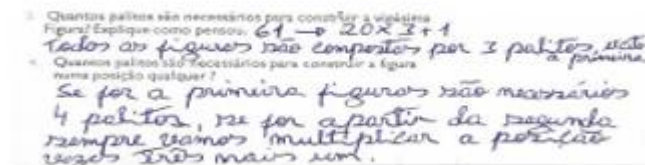 3. Quantos palitos são necessários para construir a vigésima
Figura? Explique como pensou. 61 → 20 x 3 + 1
Todos as figuras são compostos por 3 palitos, exceto
a primeira
4. Quantos palitos são necessários para construir a figura
numa posição qualquer?
Se for a primeira figuras são necessários
4 palitos, se for apartir da segunda
sempre vamos multiplicar a posição
vezes três mais um.